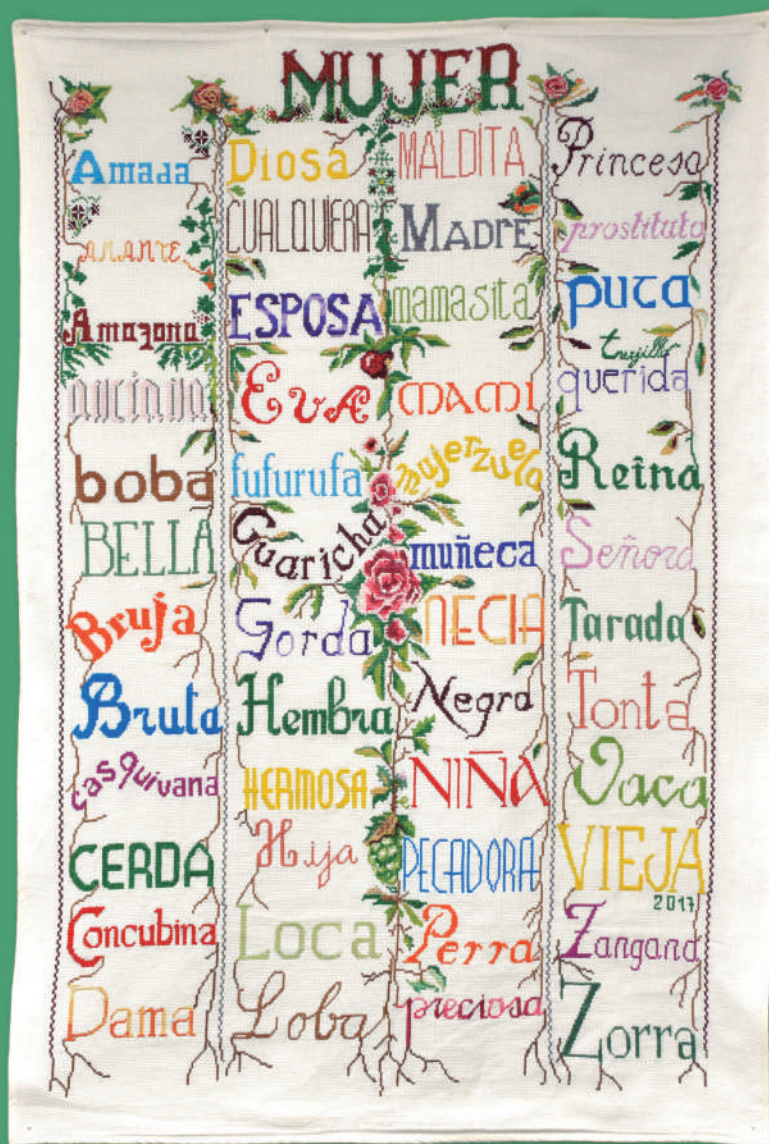 MUJER
Amada
AMANTE
Amazona
anciana
boba
BELLA
Bruja
Bruta
casquivana
CERDA
Concubina
Dama
Diosa
CUALQUIERA
ESPOSA
Eva
fufurufa
Guaricha
Gorda
Hembra
HERMOSA
Hija
Loca
Loba
MALDITA
MADRE
mamasita
mami
mujerzuela
muñeca
NECIA
Negra
NIÑA
PECADORA
Perra
preciosa
Princesa
prostituta
puta
trujillo
querida
Reina
Señora
Tarada
Tonta
Vaca
VIEJA
2017
Zangana
Zorra